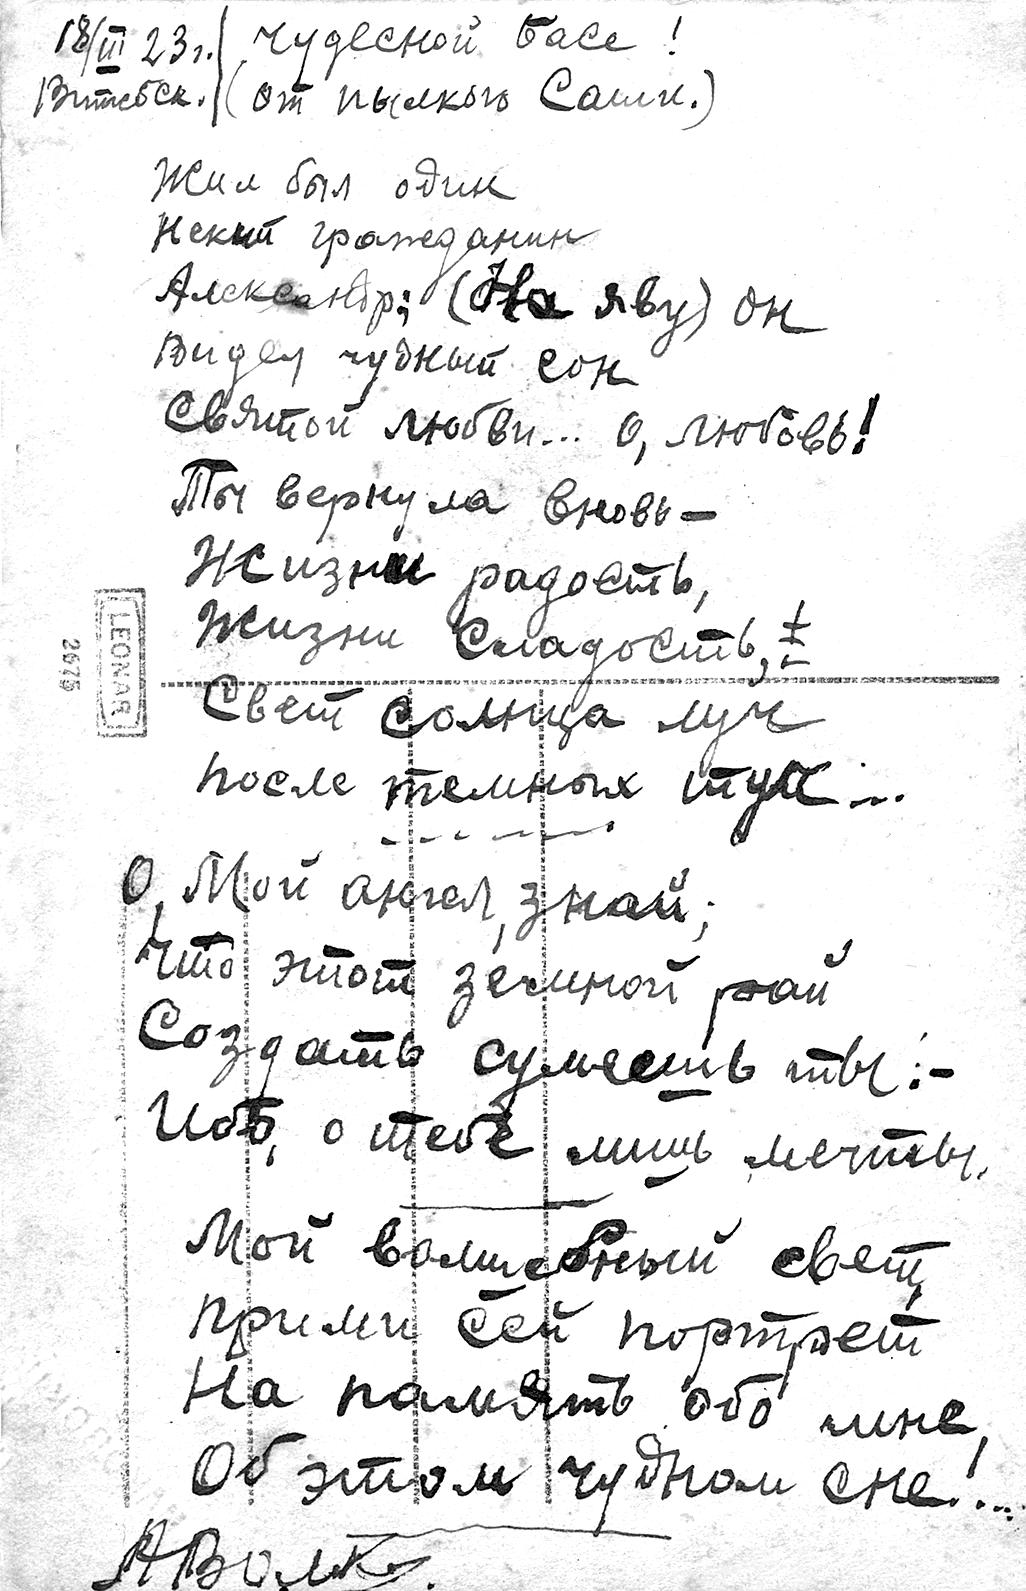 18/III 23г. Чудесной Басе!
Витебск. (от пылкого Саши.)
Жил был один
Некий гражданин
Александр; (На яву) он
Видел чудный сон
Святой любви... О, любовь!
Ты вернула вновь –
Жизни радость,
Жизни сладость,
Свет солнца луч
После темных туч...
О, Мой ангел, знай;
Что этот земной рай
Создать сумеешь ты:-
Ибо, о тебе лишь мечты.
Мой волшебный свет,
Прими сей портрет
На память обо мне,
Об этом чудном сне!...
АВолк.
LEONAR
2675